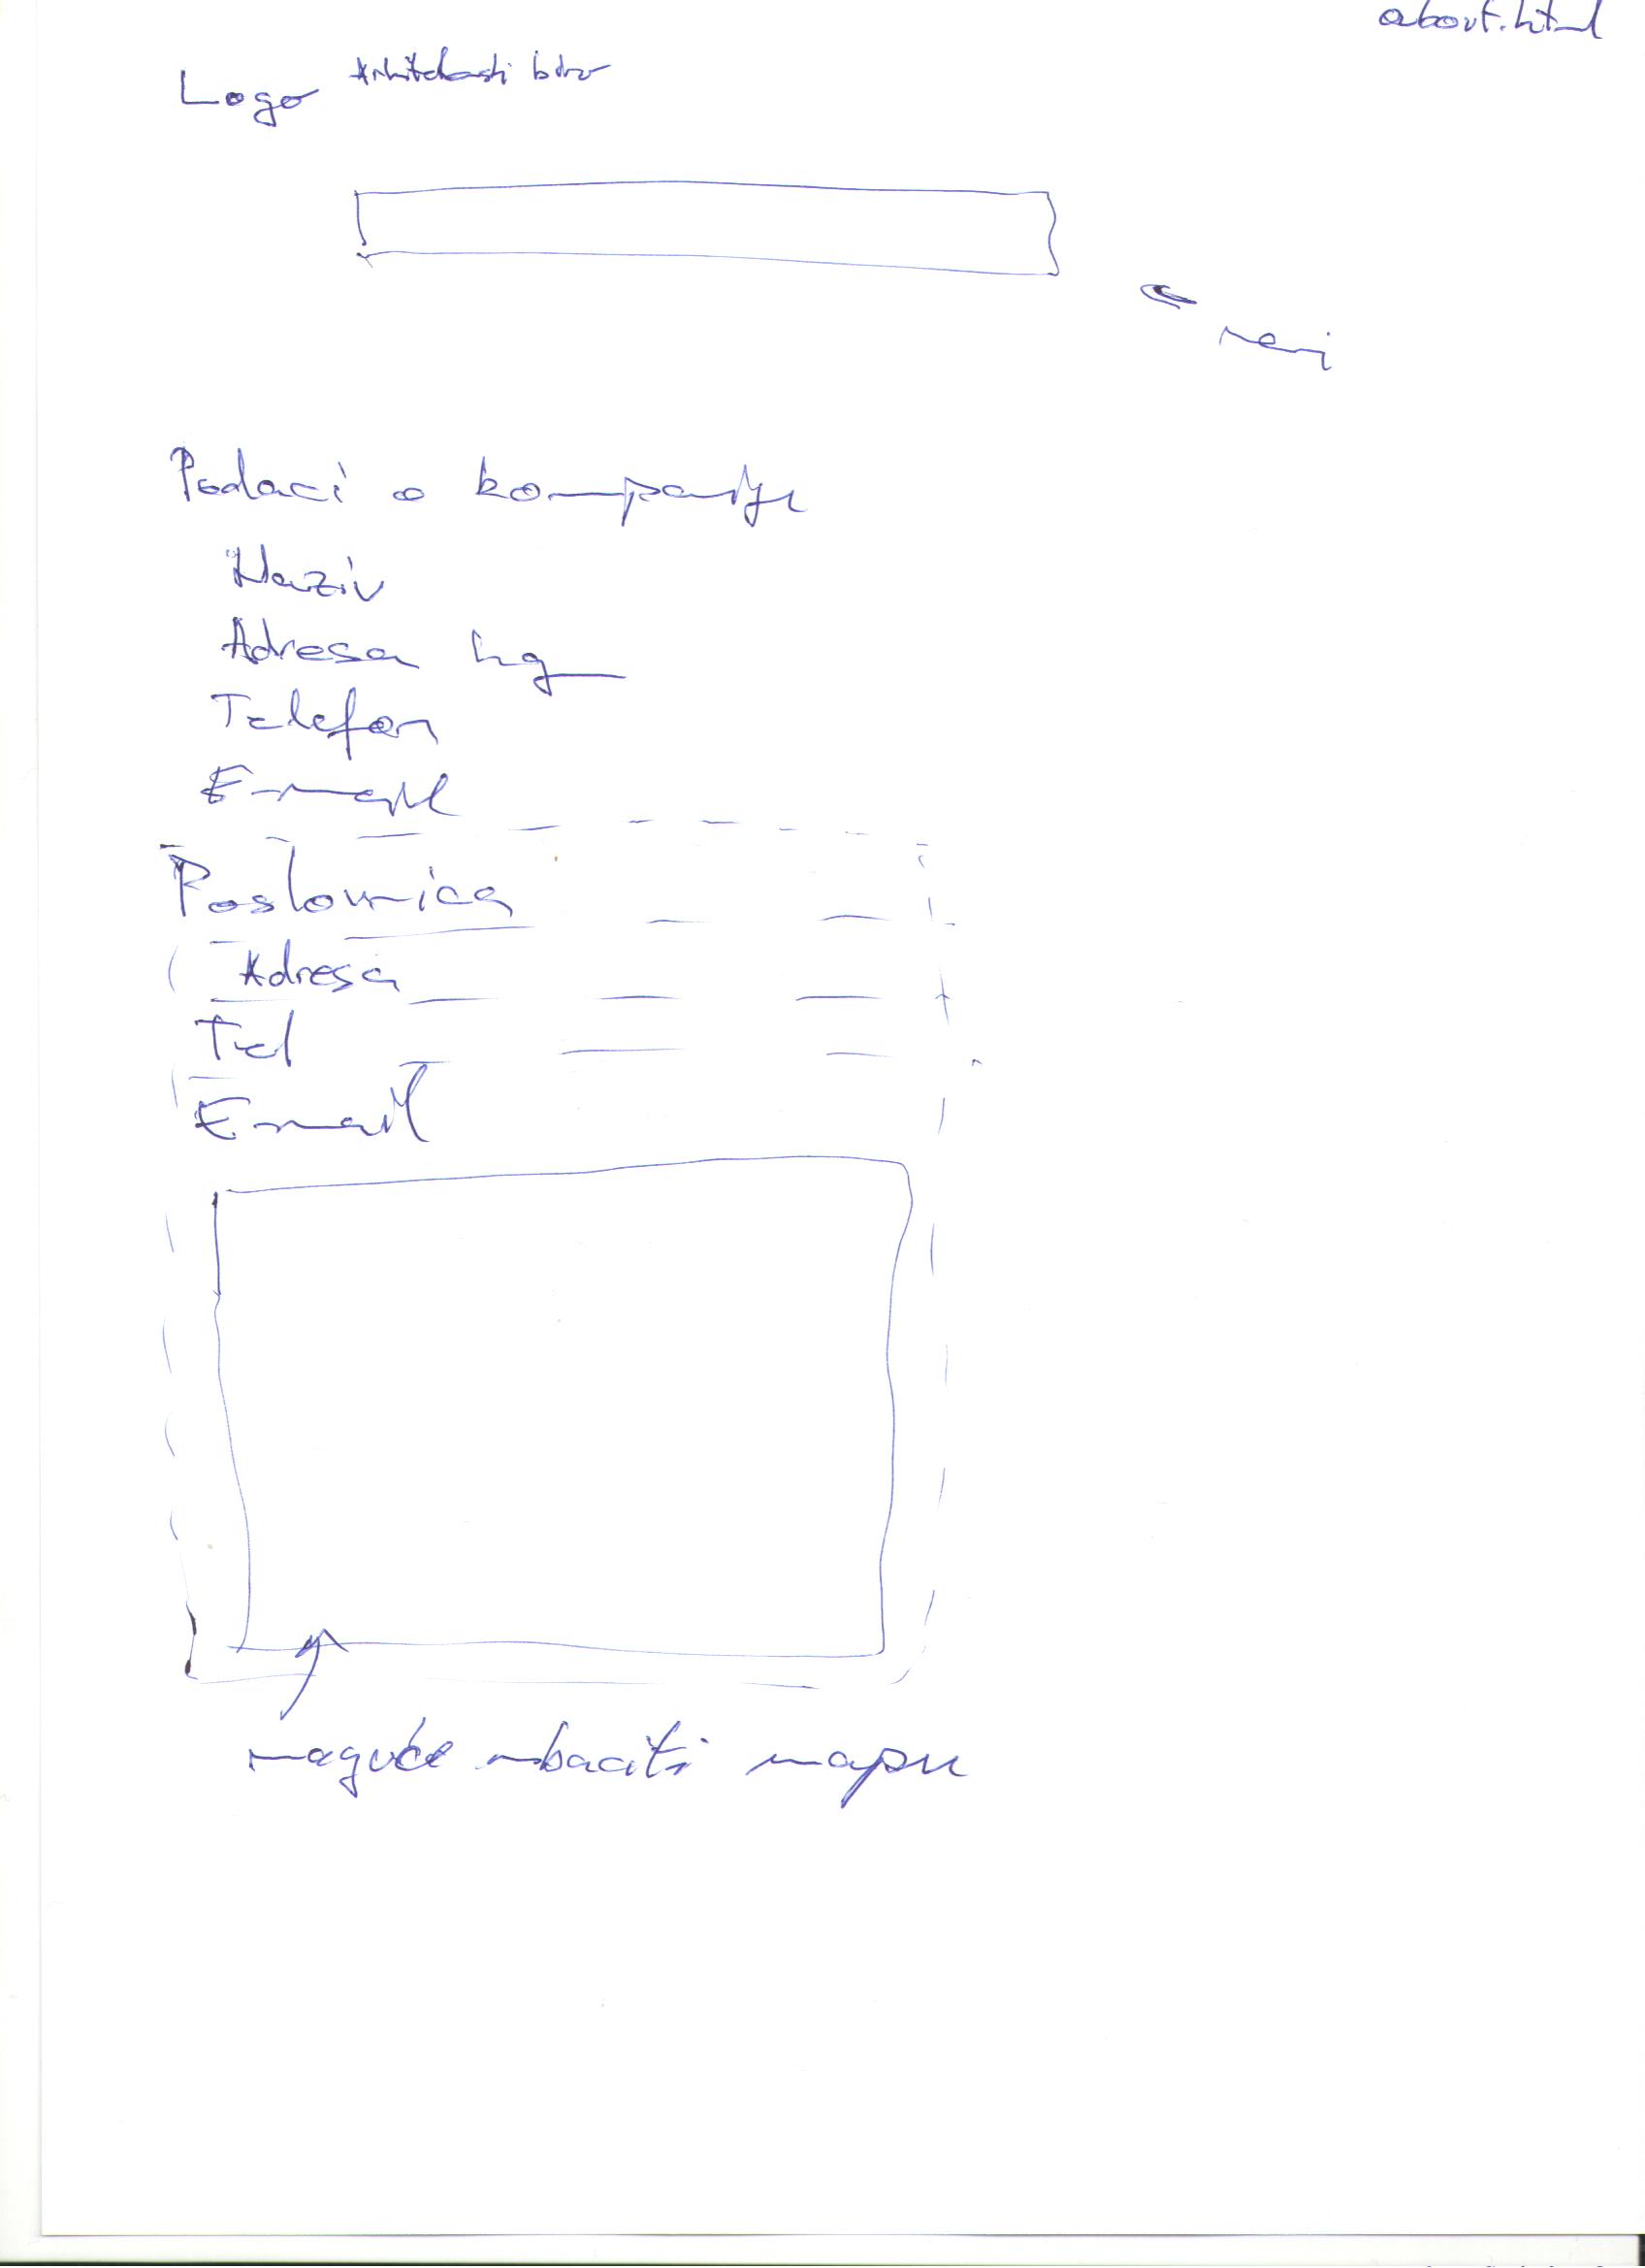 about.html
Logo Arhitektonski biro
meni
Podaci o kompaniji
Naziv
Adresa hq
Telefon
E-mail
Poslovnica
Adresa
Tel
Email
moguće ubaciti mapu